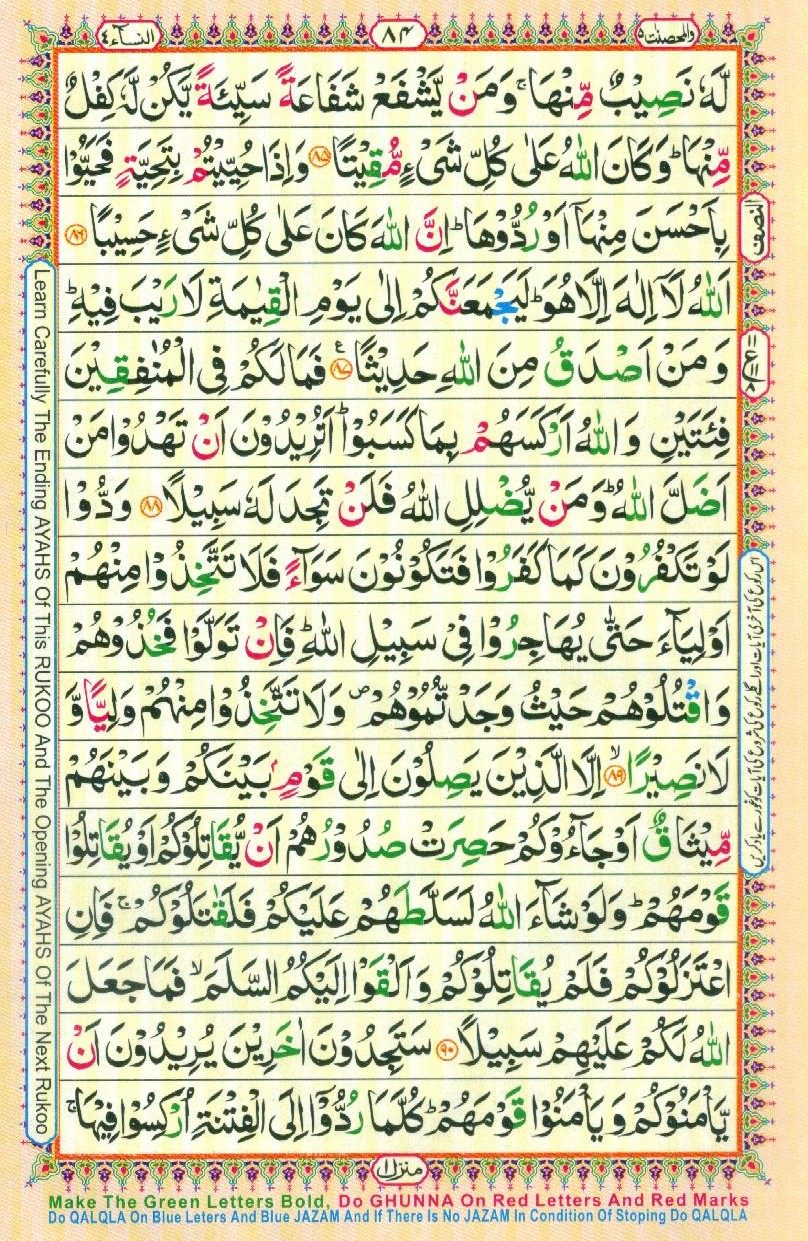 والمحصنت ۵
۸۴
النساء ۴
لَّهٗ نَصِيْبٌ مِّنْهَا ۚ وَمَنْ يَّشْفَعْ شَفَاعَةً سَيِّئَةً يَّكُنْ لَّهٗ كِفْلٌ
مِّنْهَا ؕ وَكَانَ اللّٰهُ عَلٰى كُلِّ شَىْءٍ مُّقِيْتًا ﴿۸۵﴾ وَاِذَا حُيِّيْتُمْ بِتَحِيَّةٍ فَحَيُّوْا
بِاَحْسَنَ مِنْهَاۤ اَوْ رُدُّوْهَا ؕ اِنَّ اللّٰهَ كَانَ عَلٰى كُلِّ شَىْءٍ حَسِيْبًا ﴿۸۶﴾
اَللّٰهُ لَاۤ اِلٰهَ اِلَّا هُوَ ؕ لَيَجْمَعَنَّكُمْ اِلٰى يَوْمِ الْقِيٰمَةِ لَا رَيْبَ فِيْهِ ؕ
وَمَنْ اَصْدَقُ مِنَ اللّٰهِ حَدِيْثًا ﴿۸۷﴾ ع فَمَا لَكُمْ فِى الْمُنٰفِقِيْنَ
فِئَتَيْنِ وَاللّٰهُ اَرْكَسَهُمْ بِمَا كَسَبُوْا ؕ اَتُرِيْدُوْنَ اَنْ تَهْدُوْا مَنْ
اَضَلَّ اللّٰهُ ؕ وَمَنْ يُّضْلِلِ اللّٰهُ فَلَنْ تَجِدَ لَهٗ سَبِيْلًا ﴿۸۸﴾ وَدُّوْا
لَوْ تَكْفُرُوْنَ كَمَا كَفَرُوْا فَتَكُوْنُوْنَ سَوَآءً فَلَا تَتَّخِذُوْا مِنْهُمْ
اَوْلِيَآءَ حَتّٰى يُهَاجِرُوْا فِىْ سَبِيْلِ اللّٰهِ ؕ فَاِنْ تَوَلَّوْا فَخُذُوْهُمْ
وَاقْتُلُوْهُمْ حَيْثُ وَجَدْتُّمُوْهُمْ ۪ وَلَا تَتَّخِذُوْا مِنْهُمْ وَلِيًّا وَّ
لَا نَصِيْرًا ﴿۸۹﴾ ۙ اِلَّا الَّذِيْنَ يَصِلُوْنَ اِلٰى قَوْمٍۭ بَيْنَكُمْ وَبَيْنَهُمْ
مِّيْثَاقٌ اَوْ جَآءُوْكُمْ حَصِرَتْ صُدُوْرُهُمْ اَنْ يُّقَاتِلُوْكُمْ اَوْ يُقَاتِلُوْا
قَوْمَهُمْ ؕ وَلَوْ شَآءَ اللّٰهُ لَسَلَّطَهُمْ عَلَيْكُمْ فَلَقٰتَلُوْكُمْ ۚ فَاِنِ
اعْتَزَلُوْكُمْ فَلَمْ يُقَاتِلُوْكُمْ وَاَلْقَوْا اِلَيْكُمُ السَّلَمَ ۙ فَمَا جَعَلَ
اللّٰهُ لَكُمْ عَلَيْهِمْ سَبِيْلًا ﴿۹۰﴾ سَتَجِدُوْنَ اٰخَرِيْنَ يُرِيْدُوْنَ اَنْ
يَّاْمَنُوْكُمْ وَيَاْمَنُوْا قَوْمَهُمْ ؕ كُلَّمَا رُدُّوْۤا اِلَى الْفِتْنَةِ اُرْكِسُوْا فِيْهَا ۚ
النصف
اس رکوع کی آخری آیات اور اگلے رکوع کی شروع کی آیات کو غور سے یاد کریں
Learn Carefully The Ending AYAHS Of This RUKOO And The Opening AYAHS Of The Next Rukoo
منزل ۱
Make The Green Letters Bold, Do GHUNNA On Red Letters And Red Marks
Do QALQLA On Blue Leters And Blue JAZAM And If There Is No JAZAM In Condition Of Stoping Do QALQLA